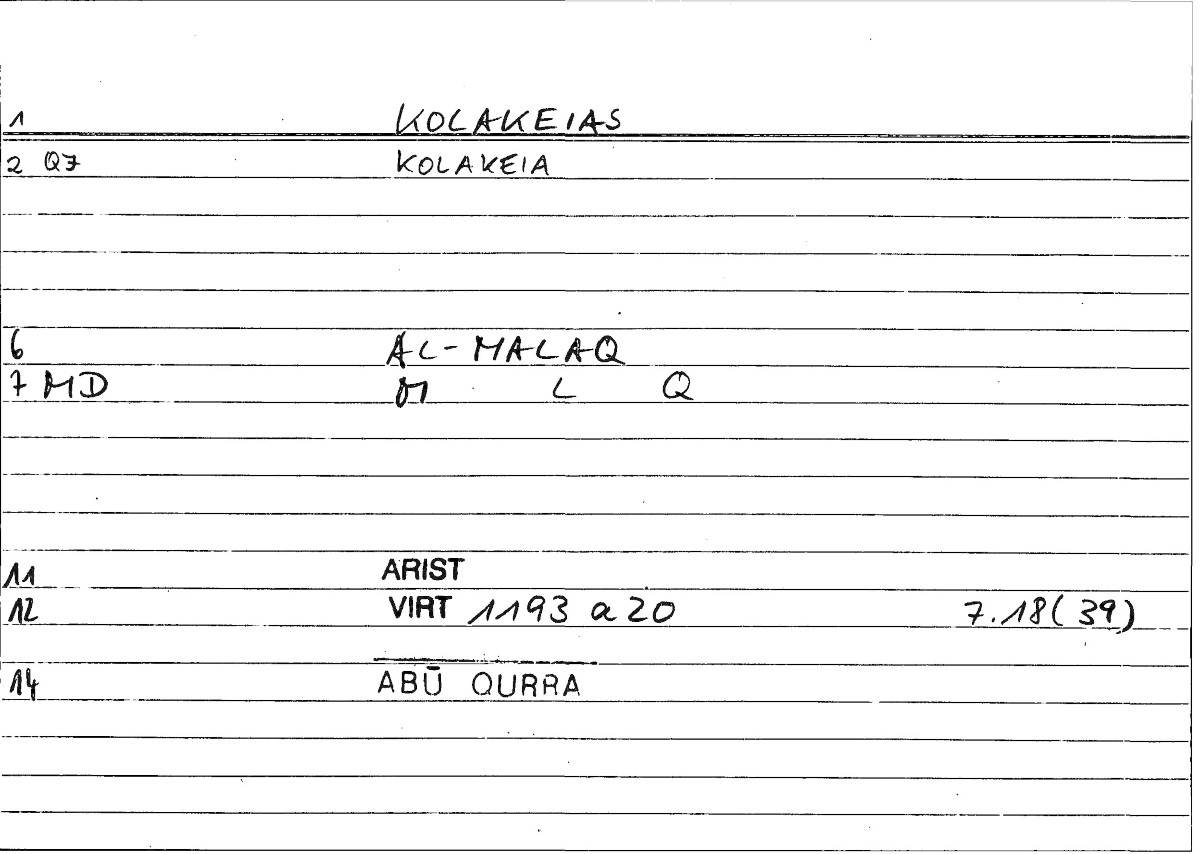 1 KOLAKEIAS
2 Q7 KOLAKEIA
6 AL-MALAQ
7 MD M L Q
11 ARIST
12 VIRT 1193 a 20 7.18(39)
14 ABŪ QURRA